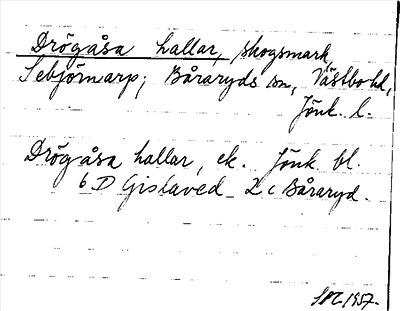 Drögåsa hallar, skogsmark,
Sebjörnarp; Båraryds sn, Västbo hd,
Jönk. l.
Drögåsa hallar, ek. Jönk. bl.
6 D Gislaved 2 c Båraryd.
1957.